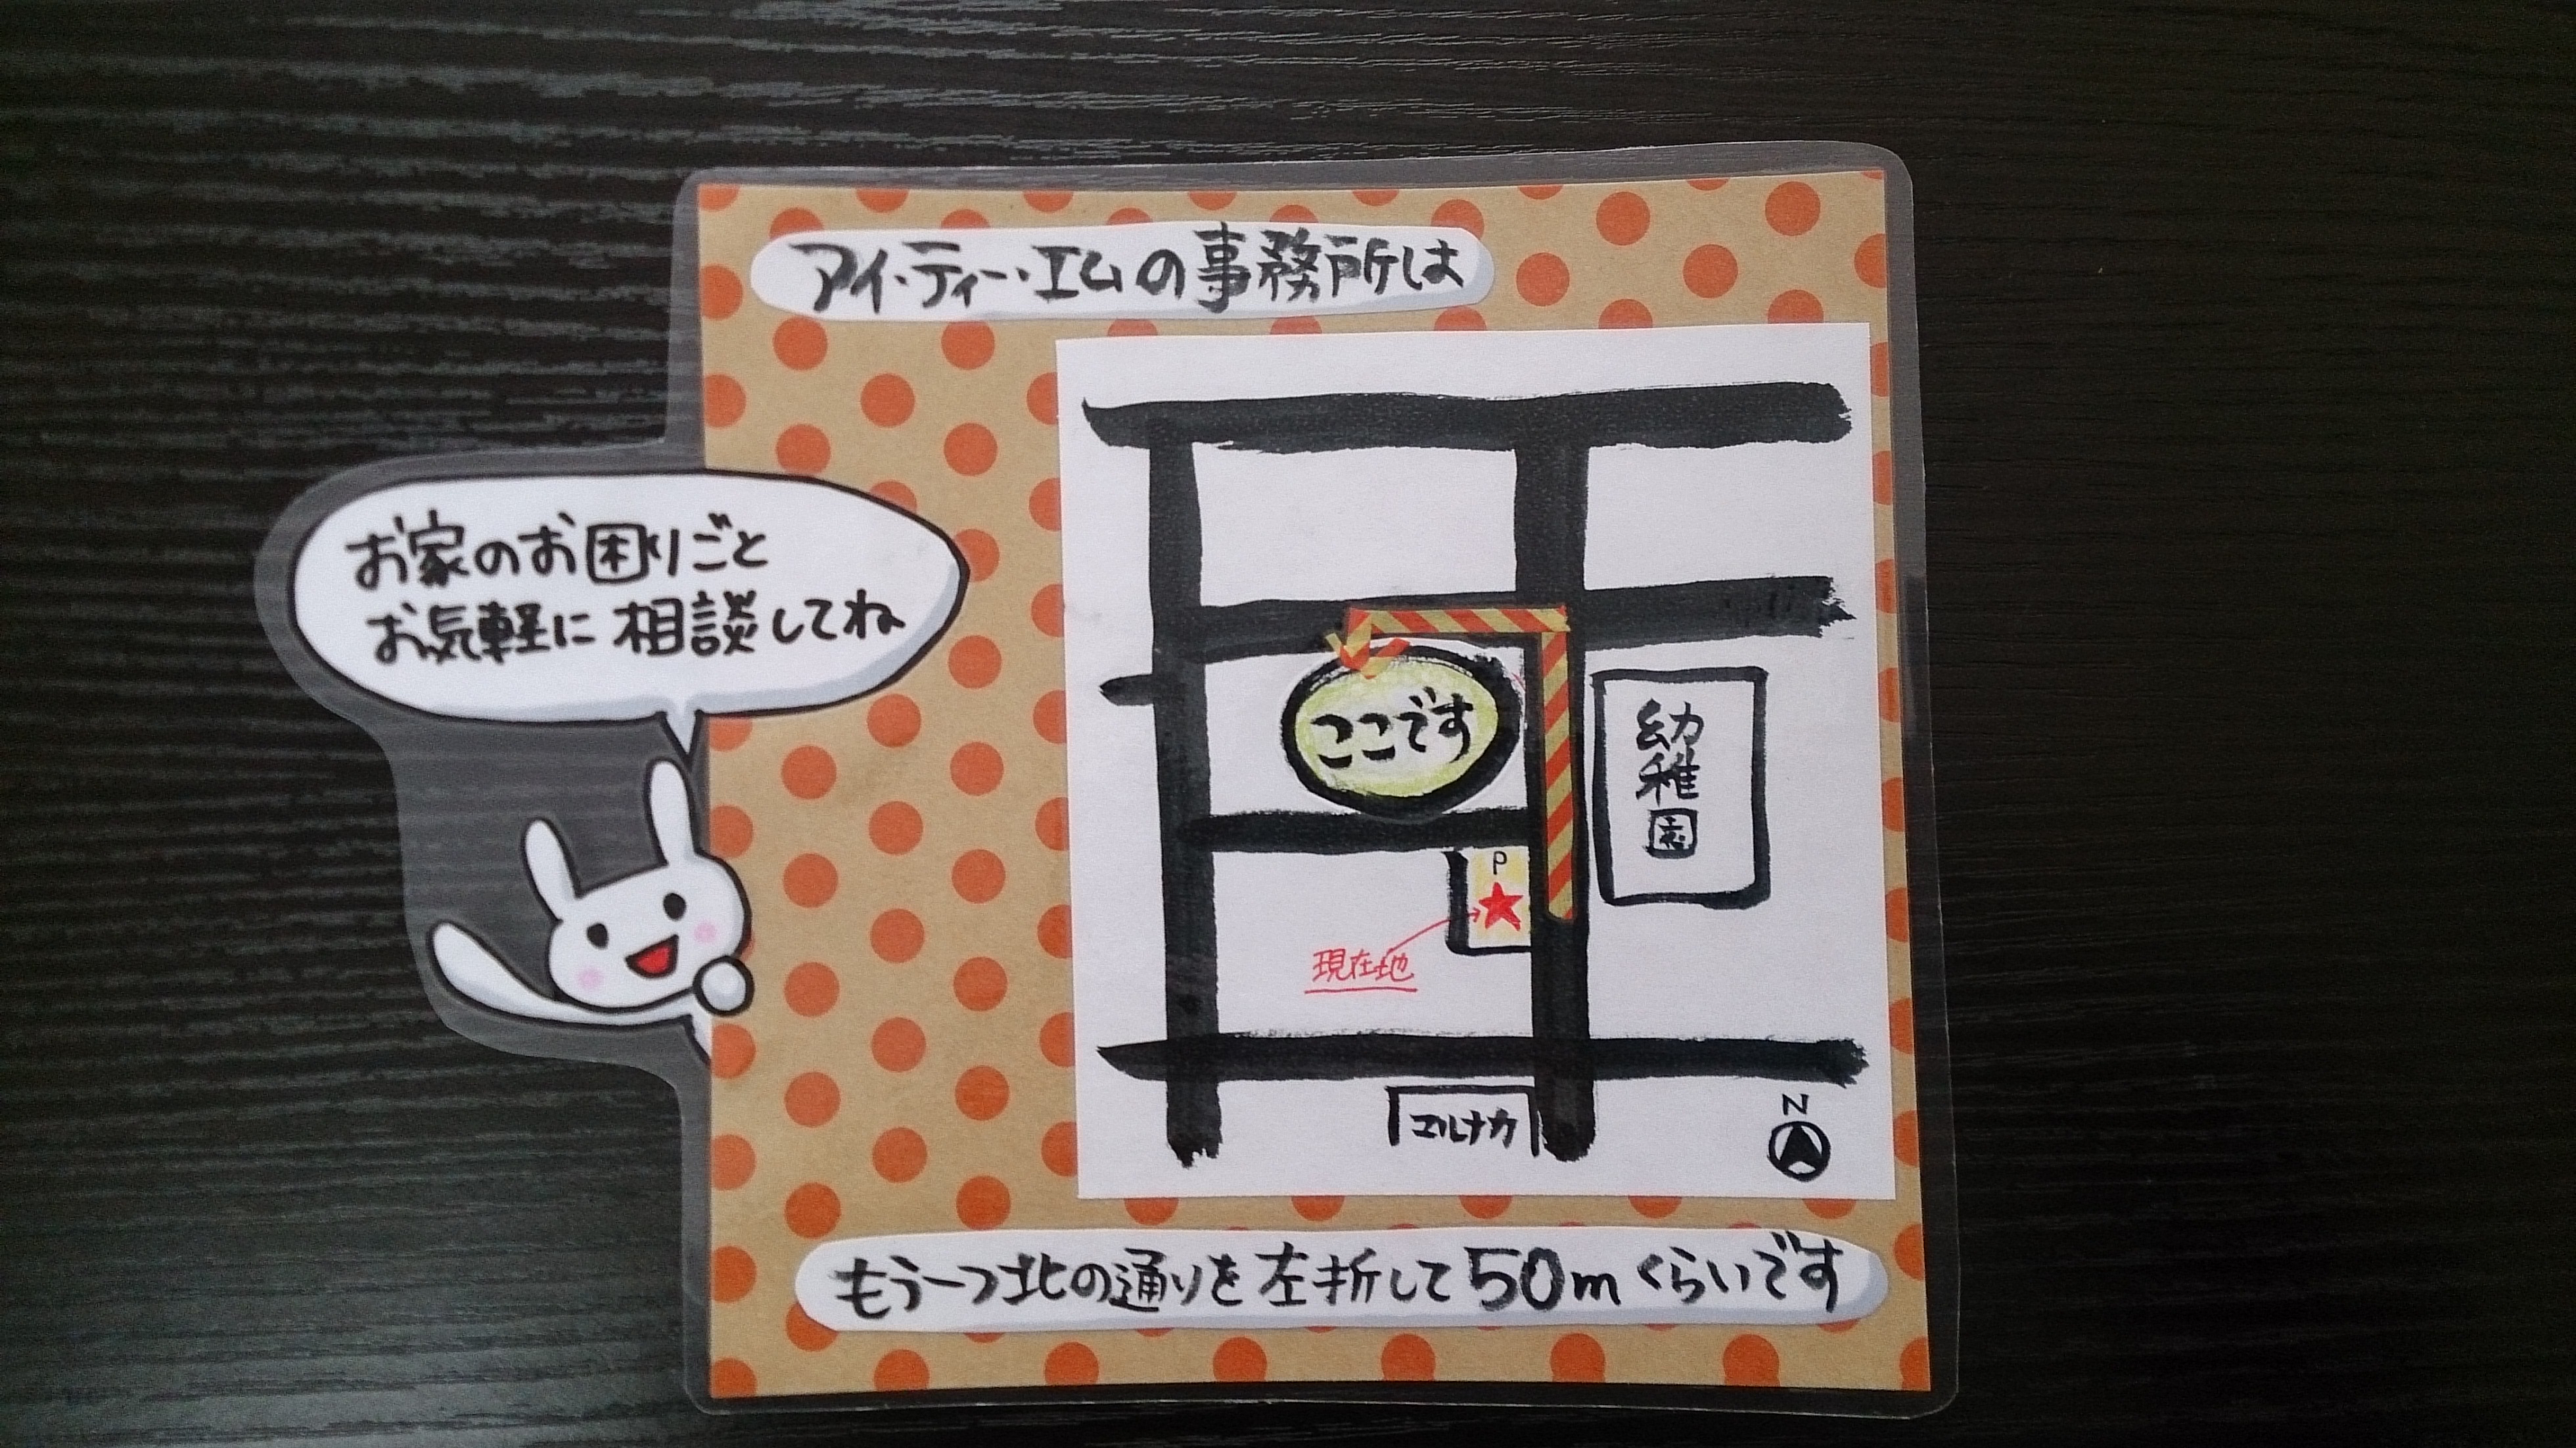 アイ・ティー・エムの事務所は
お家のお困りごと
お気軽に相談してね
ここです
幼稚園
P
現在地
エルナカ
N
もう一つ北の通りを左折して50mくらいです